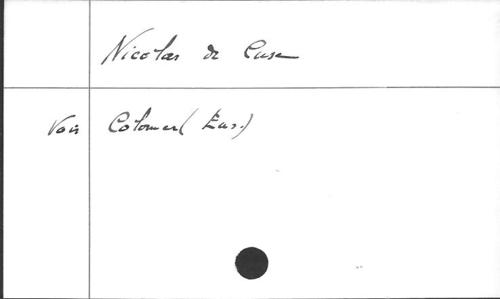 Nicolas de Cuse
Voir Colomer (Eus.)